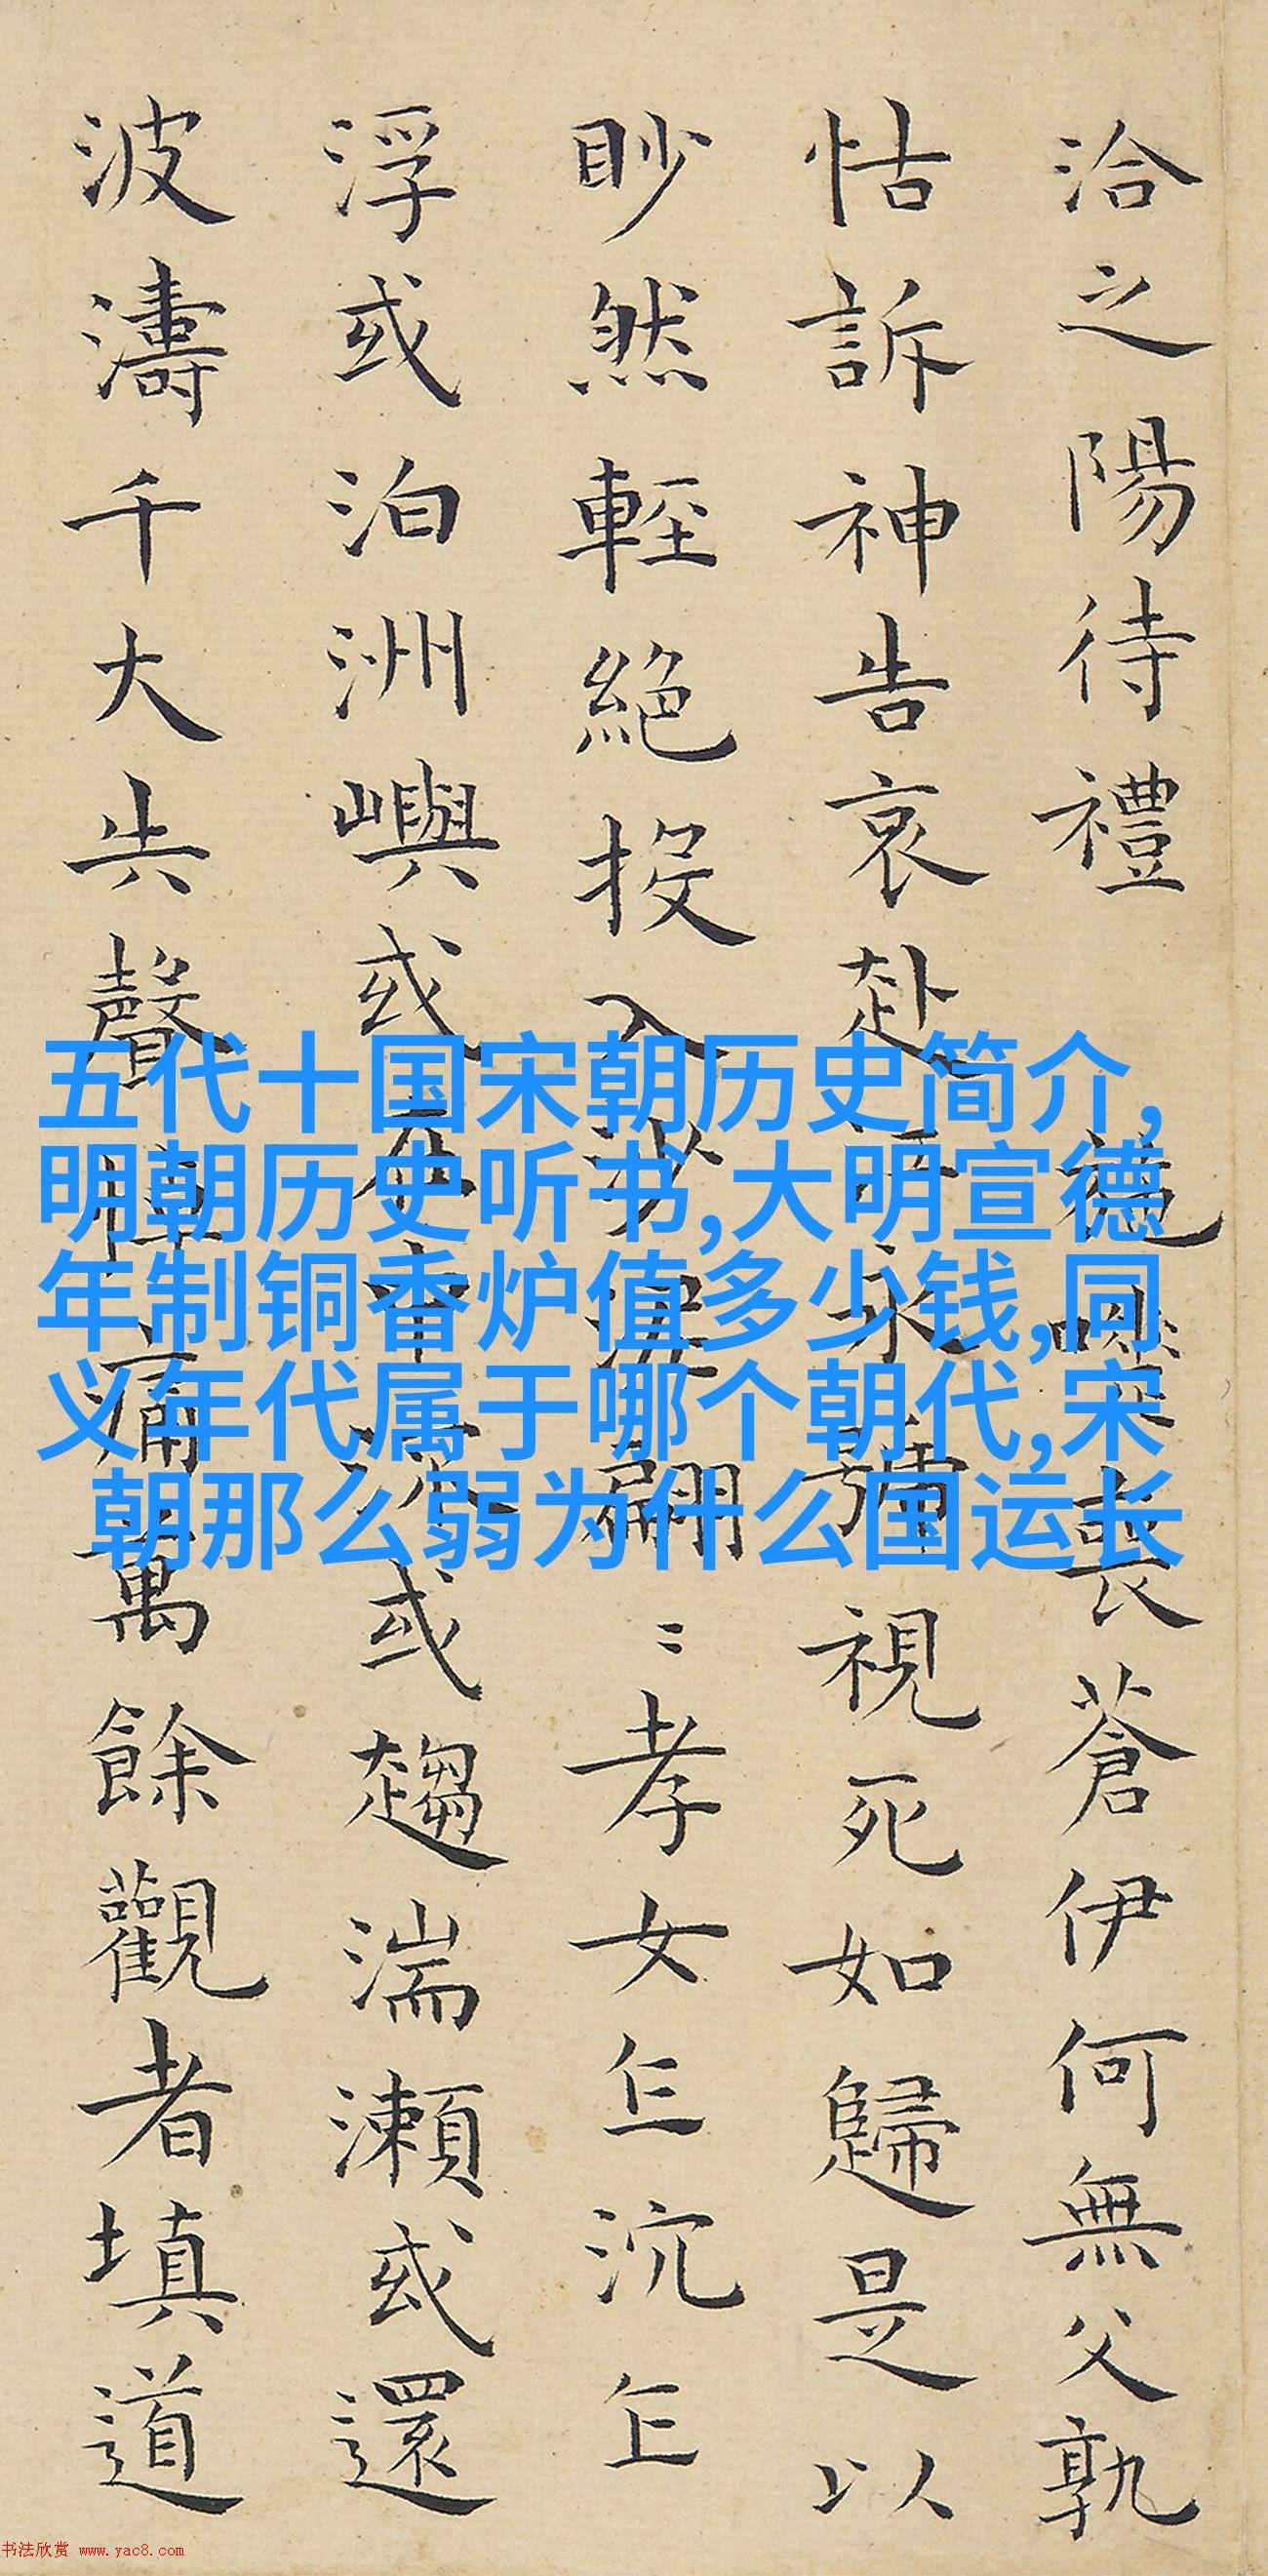 洽之陽待禮施嗟喪蒼伊何無父孰
怙訴神告哀赴江永號視死如歸是以
眇然輕絕投入沙泥翩〻孝女乍沉乍
浮或泊洲嶼或在中流或趨湍瀨或還
波濤千大失聲悼痛萬餘觀者填道
五代十国宋朝历史简介,
明朝历史听书,大明宣德
年制铜香炉值多少钱,同
义年代属于哪个朝代,宋
朝那么弱为什么国运长
书法欣赏 www.yac8.com